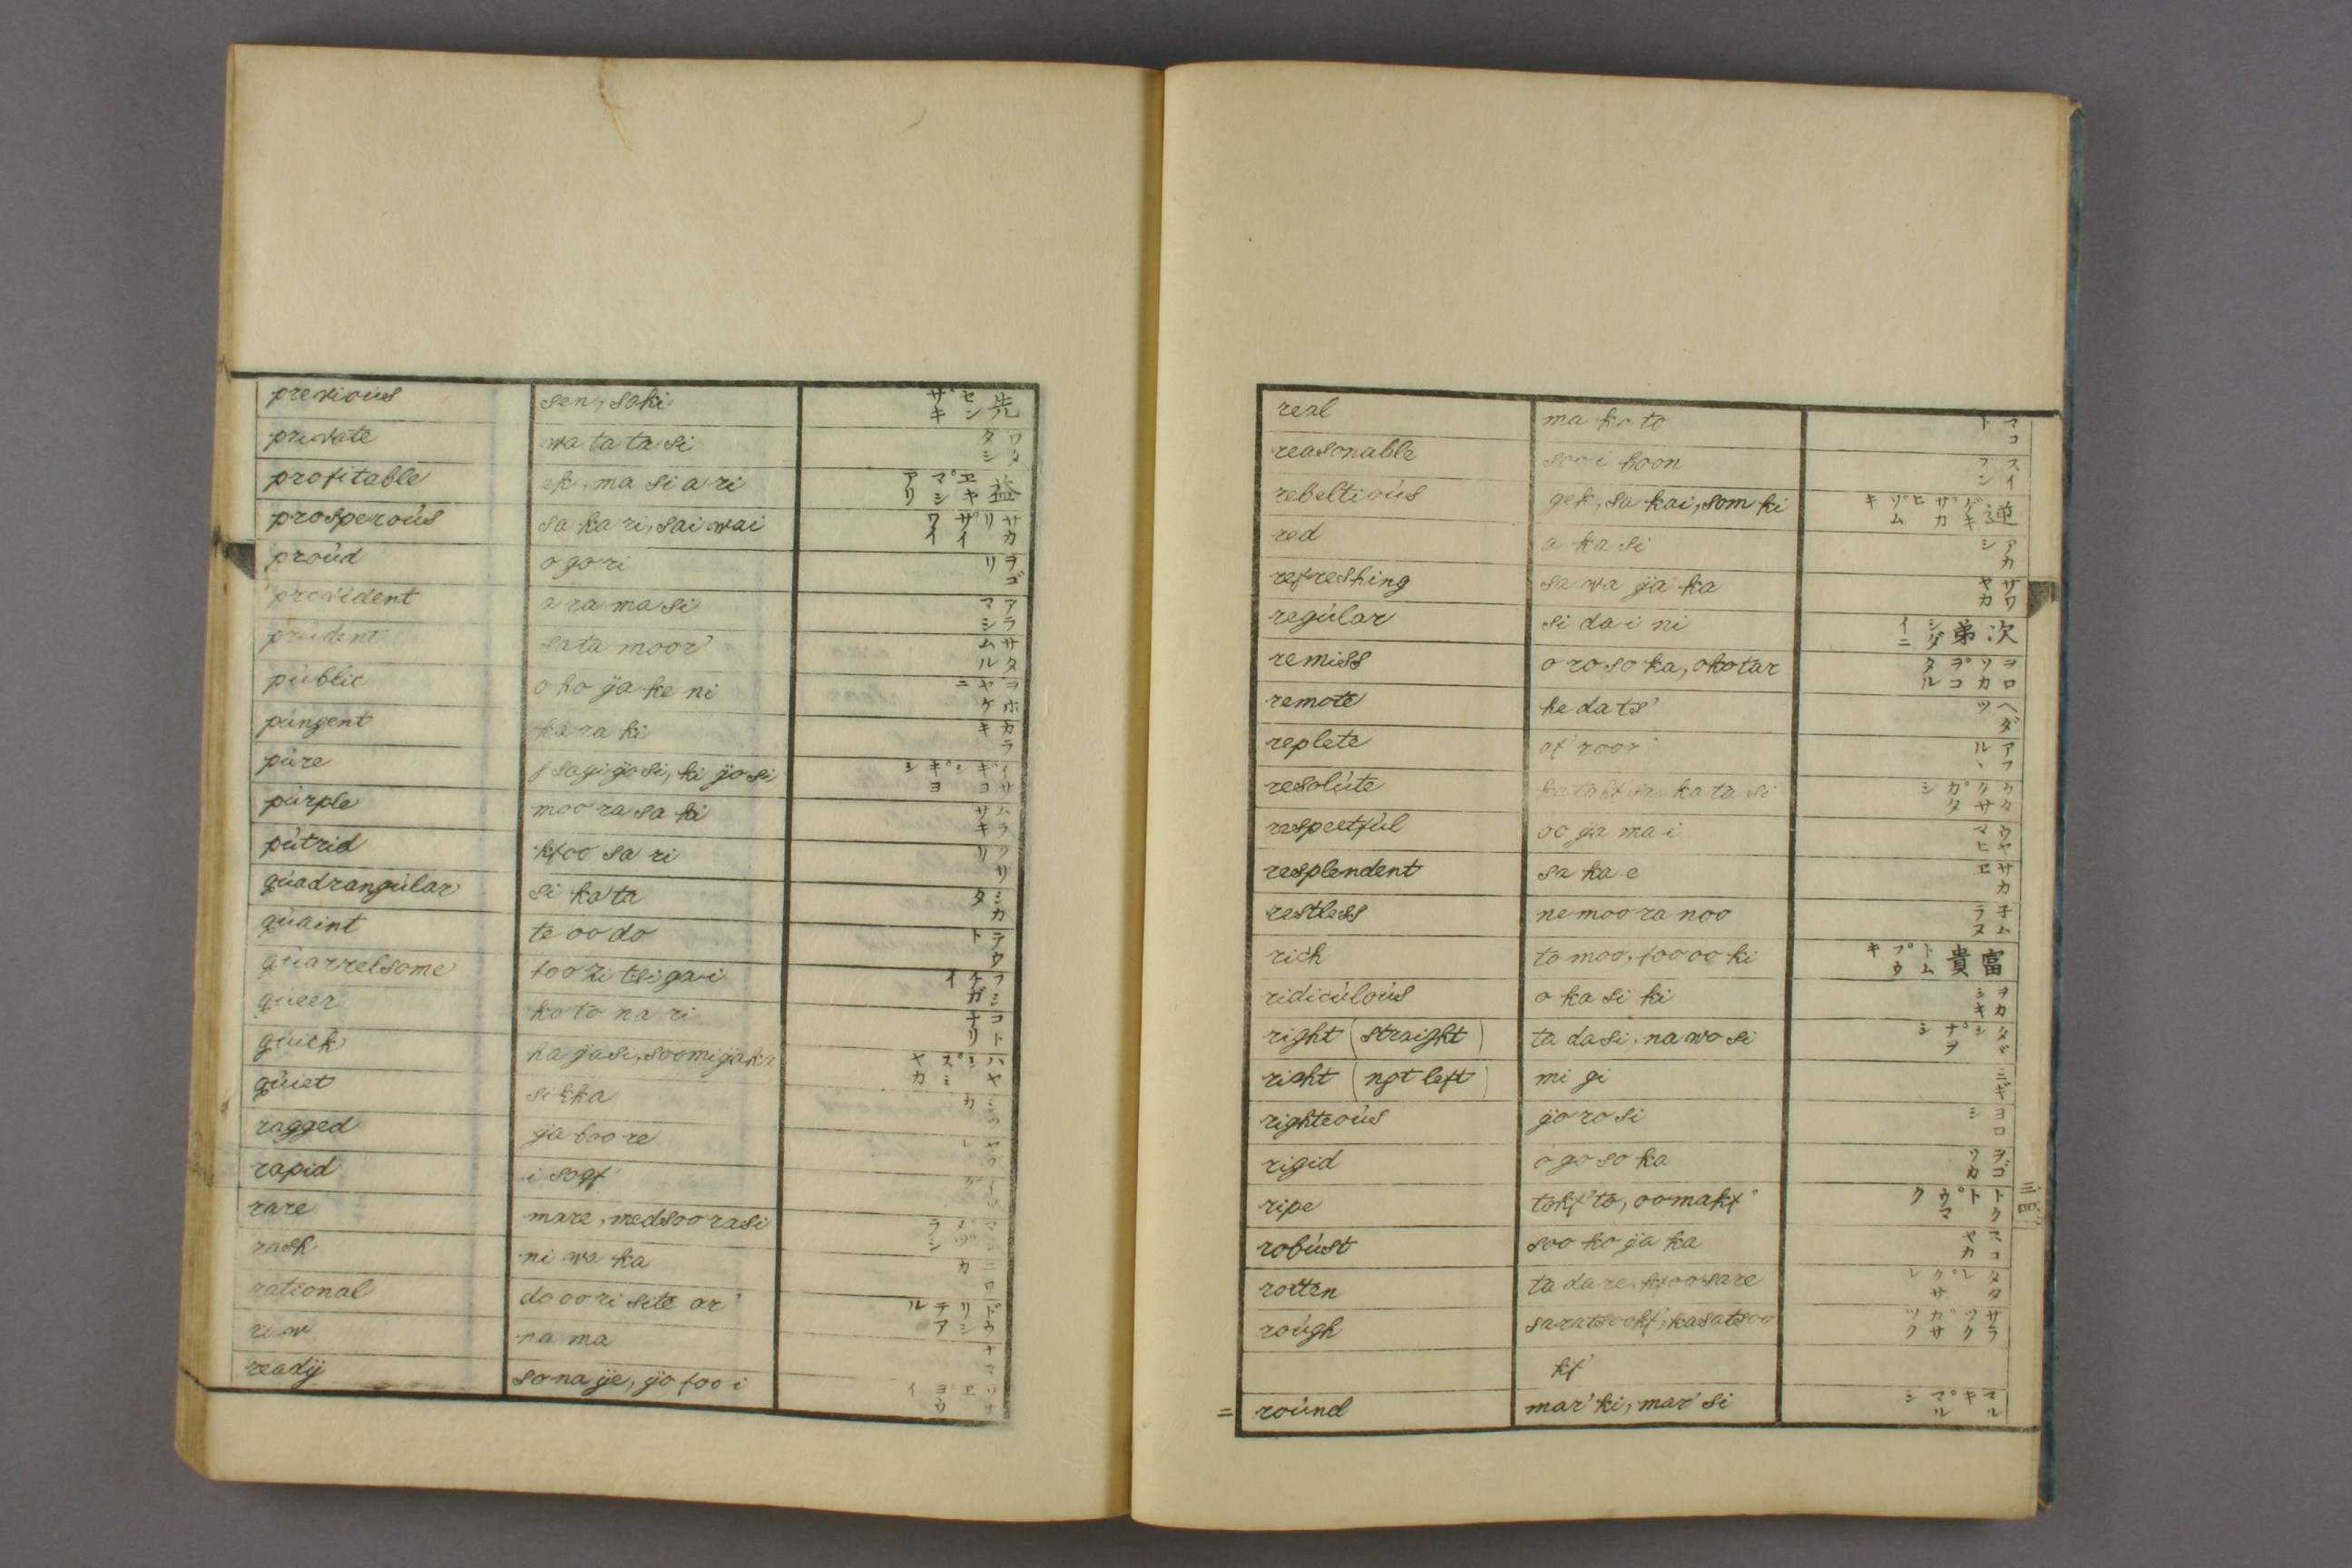 previoús sen, saki 先 セン ザキ
private wa ta ta si ワタタシ
profitable ek, ma si a ri 益 エキ マシアリ
prosperoús sa ka ri, sai wai サカリ サイワイ
proúd o go ri ヲゴリ
provident a ra ma si アラマシ
prúdent sata moor' サタムル
públic o ho ÿa ke ni ヲホヤケニ
púngent ka ra ki カラキ
púre isagi ÿo si, ki ÿo si イサギヨシ キヨシ
púrple moo ra sa ki ムラサキ
pútrid kfoo sa ri クサリ
qúadrangúlar si ka ta シカタ
qúaint te oo do テウト
qúarrelsome foo zi tsi ga i フジチガイ
qúeer ko to na ri コトナリ
qúick ha ÿasi, soomiÿaka ハヤシ スミヤカ
qúiet si kka カ
ragged ÿa boo re ヤブレ
rapid i sogf
rare mare, medsoorasi マレ メヅラシ
rash ni wa ka ニワカ
rational do oo ri site ar' ドウリシテアル
raw na ma ナマ
readÿ sona ÿe, ÿo foo i ソナエ ヨウイ
real ma ko to マコト
reasonable soo i boon スイブン
rebeltioús gek, sa kai, som ki 逆 ゲキ サカヒ ソムキ
red a ka si アカシ
refreshing sa wa ÿa ka サワヤカ
regúlar si da i ni 次弟 シダイニ
remiss o ro so ka, okotar ヲロソカ ヲコタル
remote he da ts' ヘダツ
replete af' roor' アフヽル
resolúte ka ta si カタシ
respectfúl oo ÿa ma i ウヤマヒ
resplendent sa ka e サカエ
restless ne moo ra noo 子ムラヌ
rich to moo, foo oo ki 富貴 トム フウキ
ridicúloús o ka si ki ヲカシキ
right (straight) ta dasi, na wo si タダシ ナヲシ
right (not left) mi gi ミギ
righteoús ÿo ro si ヨロシ
rigid o go so ka ヲゴソカ
ripe tokf' to, oomakf' トクト ウマク
robúst soo ko ÿa ka スコヤカ
rotten ta da re, kfoosare タダレ クサレ
roúgh saratsookf', kasatsoo サラツク カサツク
kf'
roúnd mar' ki, mar' si マルキ マルシ
三四